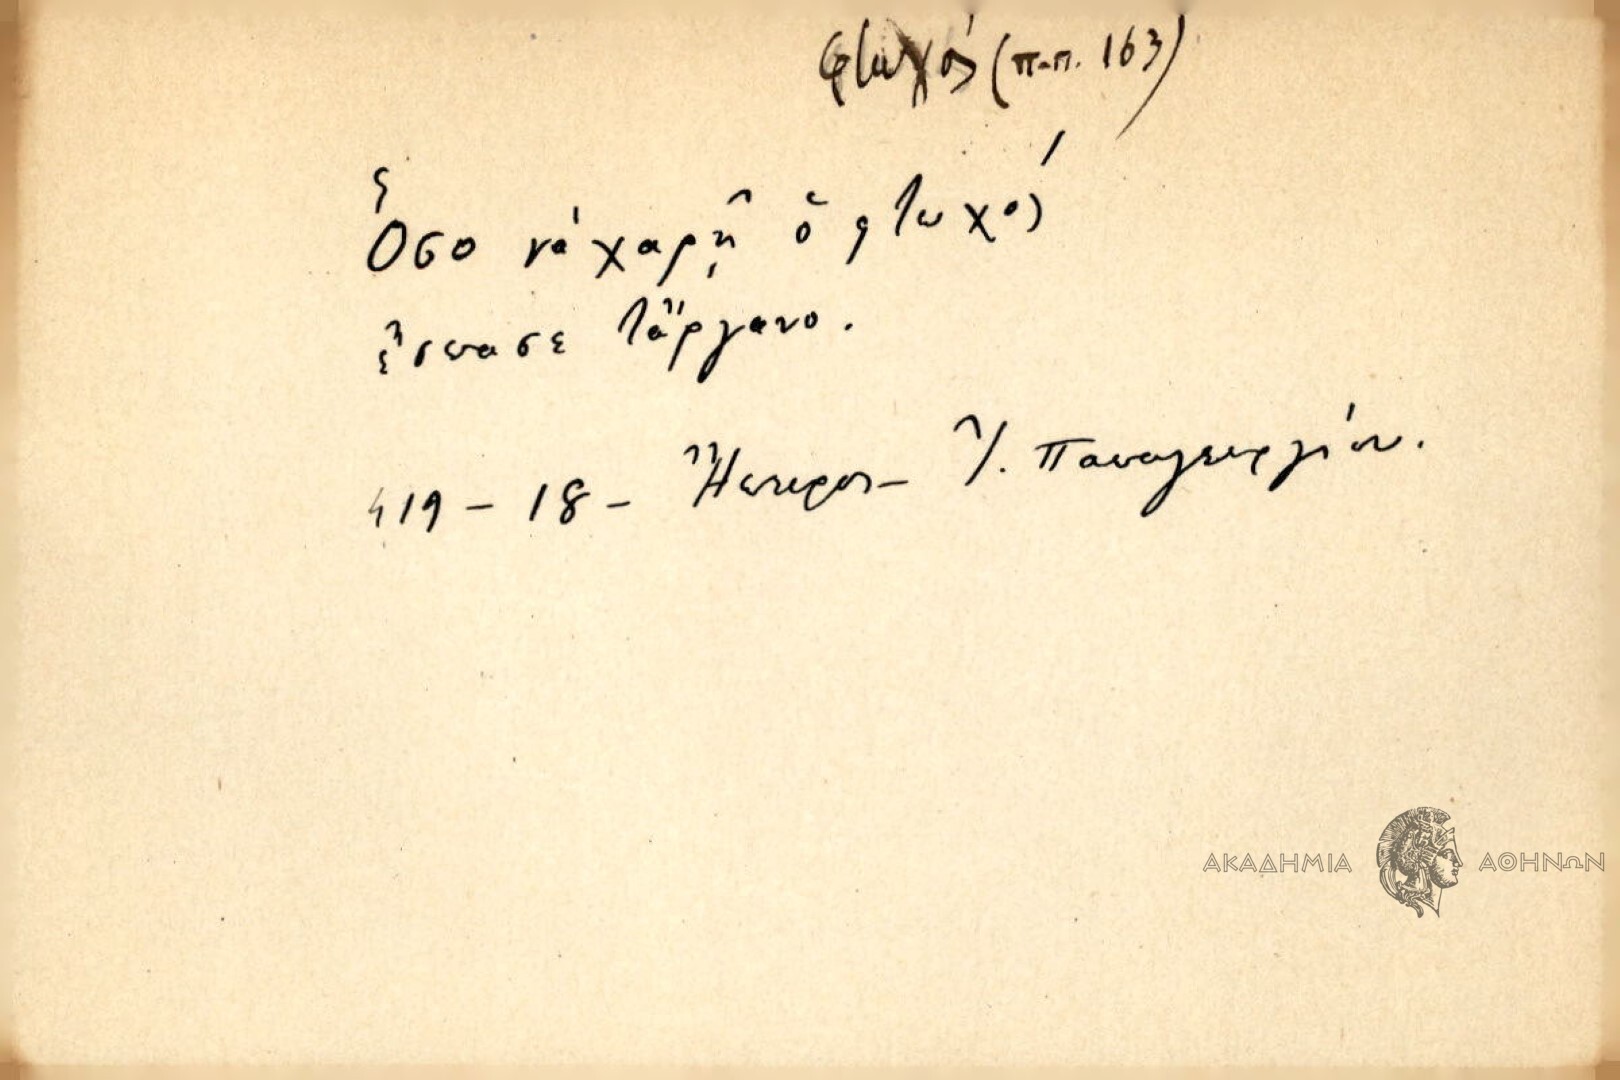 φτωχός (π.π. 163)
Ὅσο νὰ χαρῇ ὁ φτωχός
ἔσπασε τὄργανο.
419 - 18 - Ἤπειρος - Ἰ. Παπαγεωργίου.
ΑΚΑΔΗΜΙΑ ΑΘΗΝΩΝ